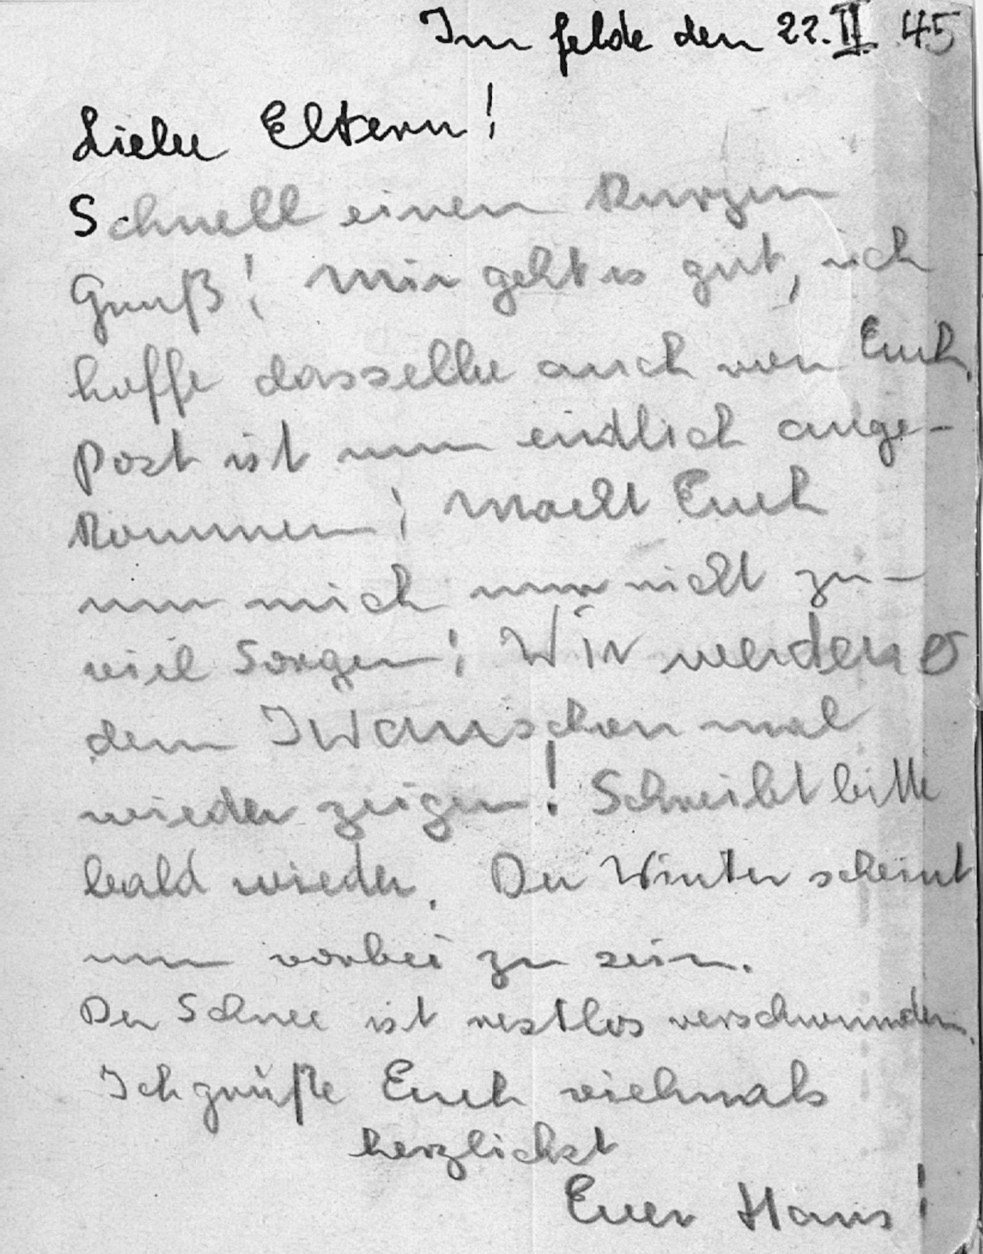 Im Felde den 22.II.45
Liebe Eltern!
Schnell einen kurzen
Gruß! Mir geht es gut, ich
hoffe dasselbe auch von Euch.
Post ist nun endlich ange-
kommen! Macht Euch
um mich nur nicht zu-
viel Sorgen! Wir werden es
dem Iwan schon mal
wieder zeigen! Schreibt bitte
bald wieder. Der Winter scheint
nun vorbei zu sein.
Der Schnee ist restlos verschwunden.
Ich grüße Euch vielmals
herzlichst
Euer Hans!